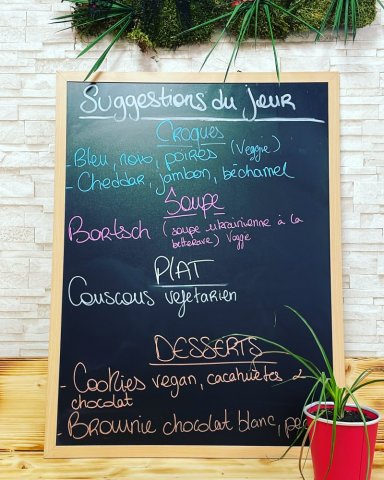 Suggestions du jour
Croques
- Bleu, noix, poires (Veggie)
- Cheddar, jambon, béchamel
Soupe
Bortsch (soupe ukrainienne à la
betterave) Vegge
PLAT
Couscous vejetarien
DESSERTS
- Cookies vegan, cacahuètes &
chocolat
- BROWNIE chocolat blanc,